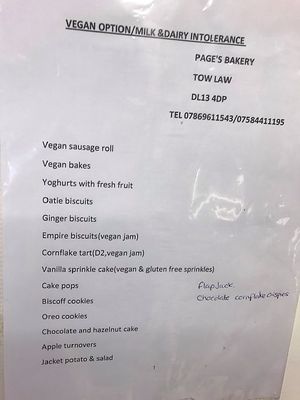 VEGAN OPTION/MILK &DAIRY INTOLERANCE
PAGE'S BAKERY
TOW LAW
DL13 4DP
TEL 07869611543/07584411195
Vegan sausage roll
Vegan bakes
Yoghurts with fresh fruit
Oatie biscuits
Ginger biscuits
Empire biscuits(vegan jam)
Cornflake tart(D2,vegan jam)
Vanilla sprinkle cake(vegan & gluten free sprinkles)
Cake pops
Flap Jack
Biscoff cookies
Chocolate cornflake crispies
Oreo cookies
Chocolate and hazelnut cake
Apple turnovers
Jacket potato & salad